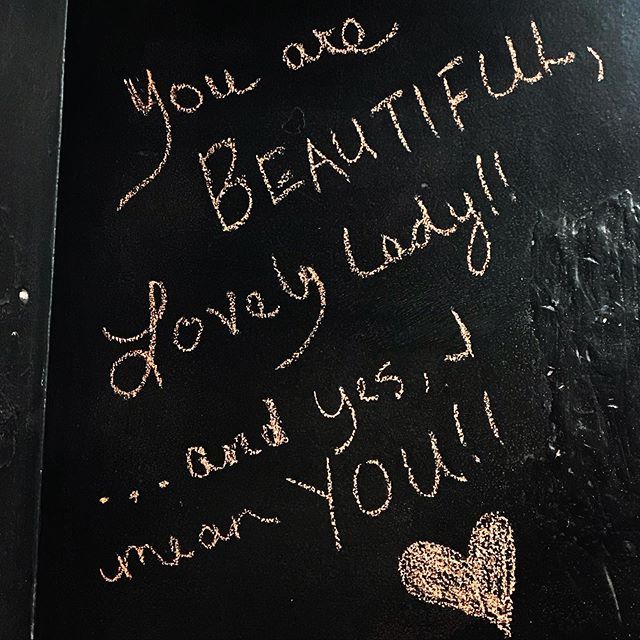 You are
BEAUTIFUL,
Lovely Lady!!
...and yes, I
mean YOU!!